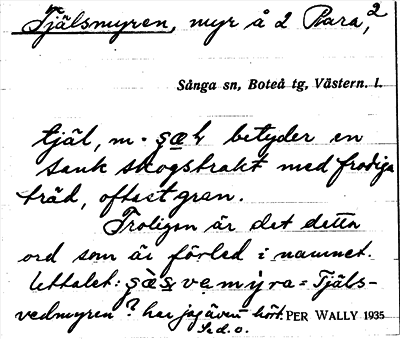 Tjälsmyren, myr å 2 Para, 2
Sånga sn, Boteå tg, Västern. l.
tjäl, m. betyder en
sank skogstrakt med frodiga
träd, oftast gran.
Troligen är det detta
ord som är förled i namnet.
Uttalet: = Tjäls-
vedmyren? har jag även hört. PER WALLY 1935
Se d. o.